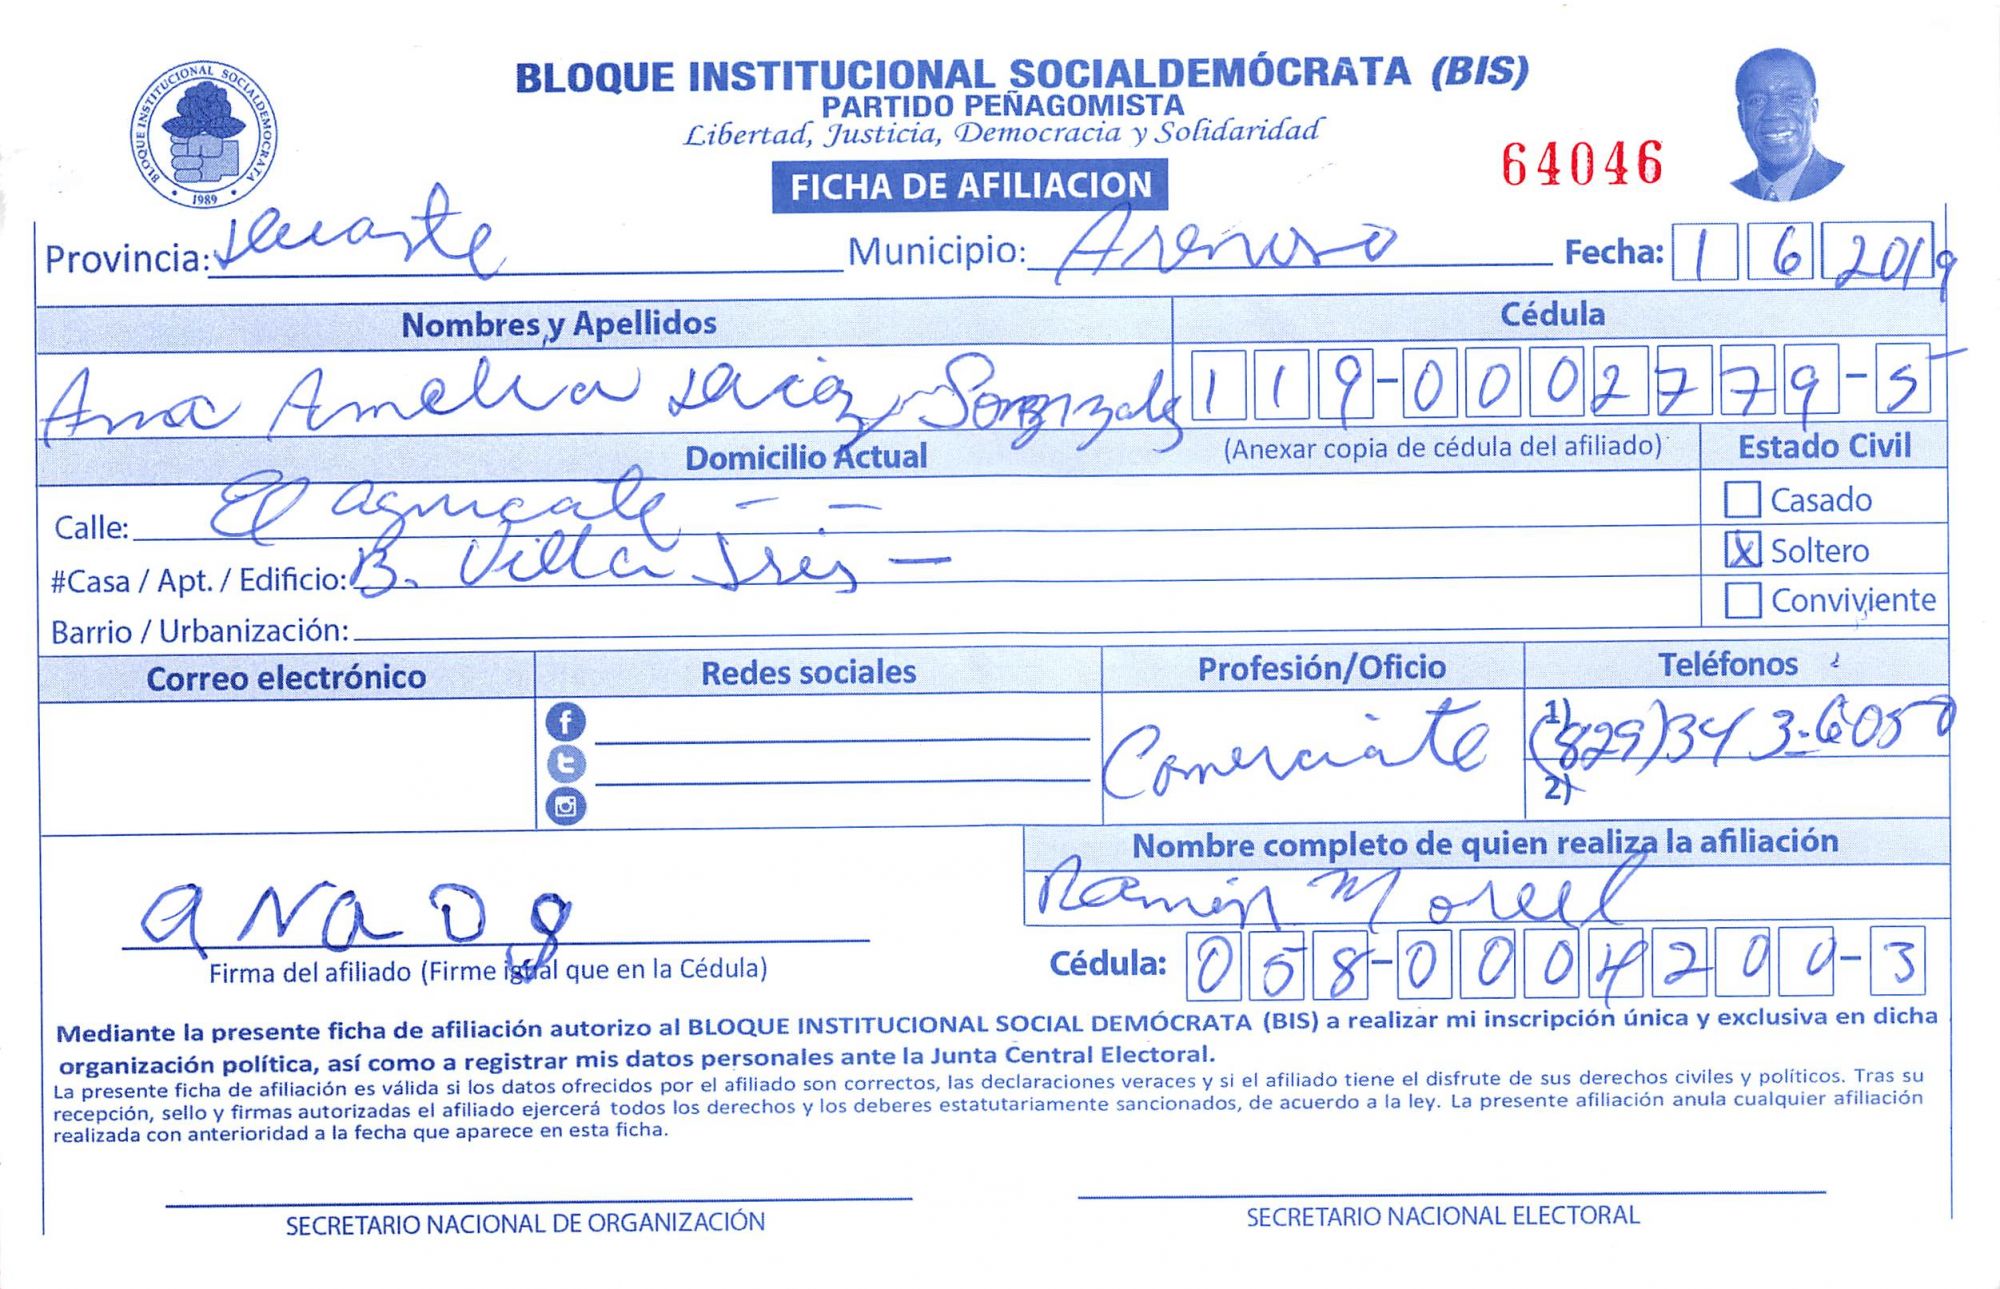 BLOQUE INSTITUCIONAL SOCIALDEMÓCRATA (BIS)
PARTIDO PEÑAGOMISTA
Libertad, Justicia, Democracia y Solidaridad
BLOQUE INSTITUCIONAL SOCIALDEMOCRATA
1989
FICHA DE AFILIACION
64046
Provincia: Duarte Municipio: Arenoso Fecha: 1 6 2019
Nombres y Apellidos Cédula
Ana Amelia 119-0002779-5
Domicilio Actual (Anexar copia de cédula del afiliado) Estado Civil
Calle: El aguacate - - Casado
#Casa / Apt. / Edificio: B. Villa - X Soltero
Barrio / Urbanización: Conviviente
Correo electrónico Redes sociales Profesión/Oficio Teléfonos
Comerciate 1) (829)343-6050
2)
Nombre completo de quien realiza la afiliación
Ramón M orel
ana D g
Firma del afiliado (Firme igual que en la Cédula) Cédula: 058-0004200-3
Mediante la presente ficha de afiliación autorizo al BLOQUE INSTITUCIONAL SOCIAL DEMÓCRATA (BIS) a realizar mi inscripción única y exclusiva en dicha
organización política, así como a registrar mis datos personales ante la Junta Central Electoral.
La presente ficha de afiliación es válida si los datos ofrecidos por el afiliado son correctos, las declaraciones veraces y si el afiliado tiene el disfrute de sus derechos civiles y políticos. Tras su
recepción, sello y firmas autorizadas el afiliado ejercerá todos los derechos y los deberes estatutariamente sancionados, de acuerdo a la ley. La presente afiliación anula cualquier afiliación
realizada con anterioridad a la fecha que aparece en esta ficha.
SECRETARIO NACIONAL DE ORGANIZACIÓN SECRETARIO NACIONAL ELECTORAL